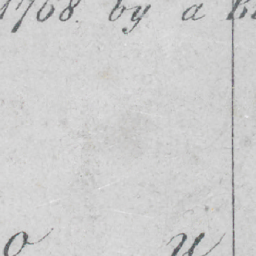 1768. by a
o u